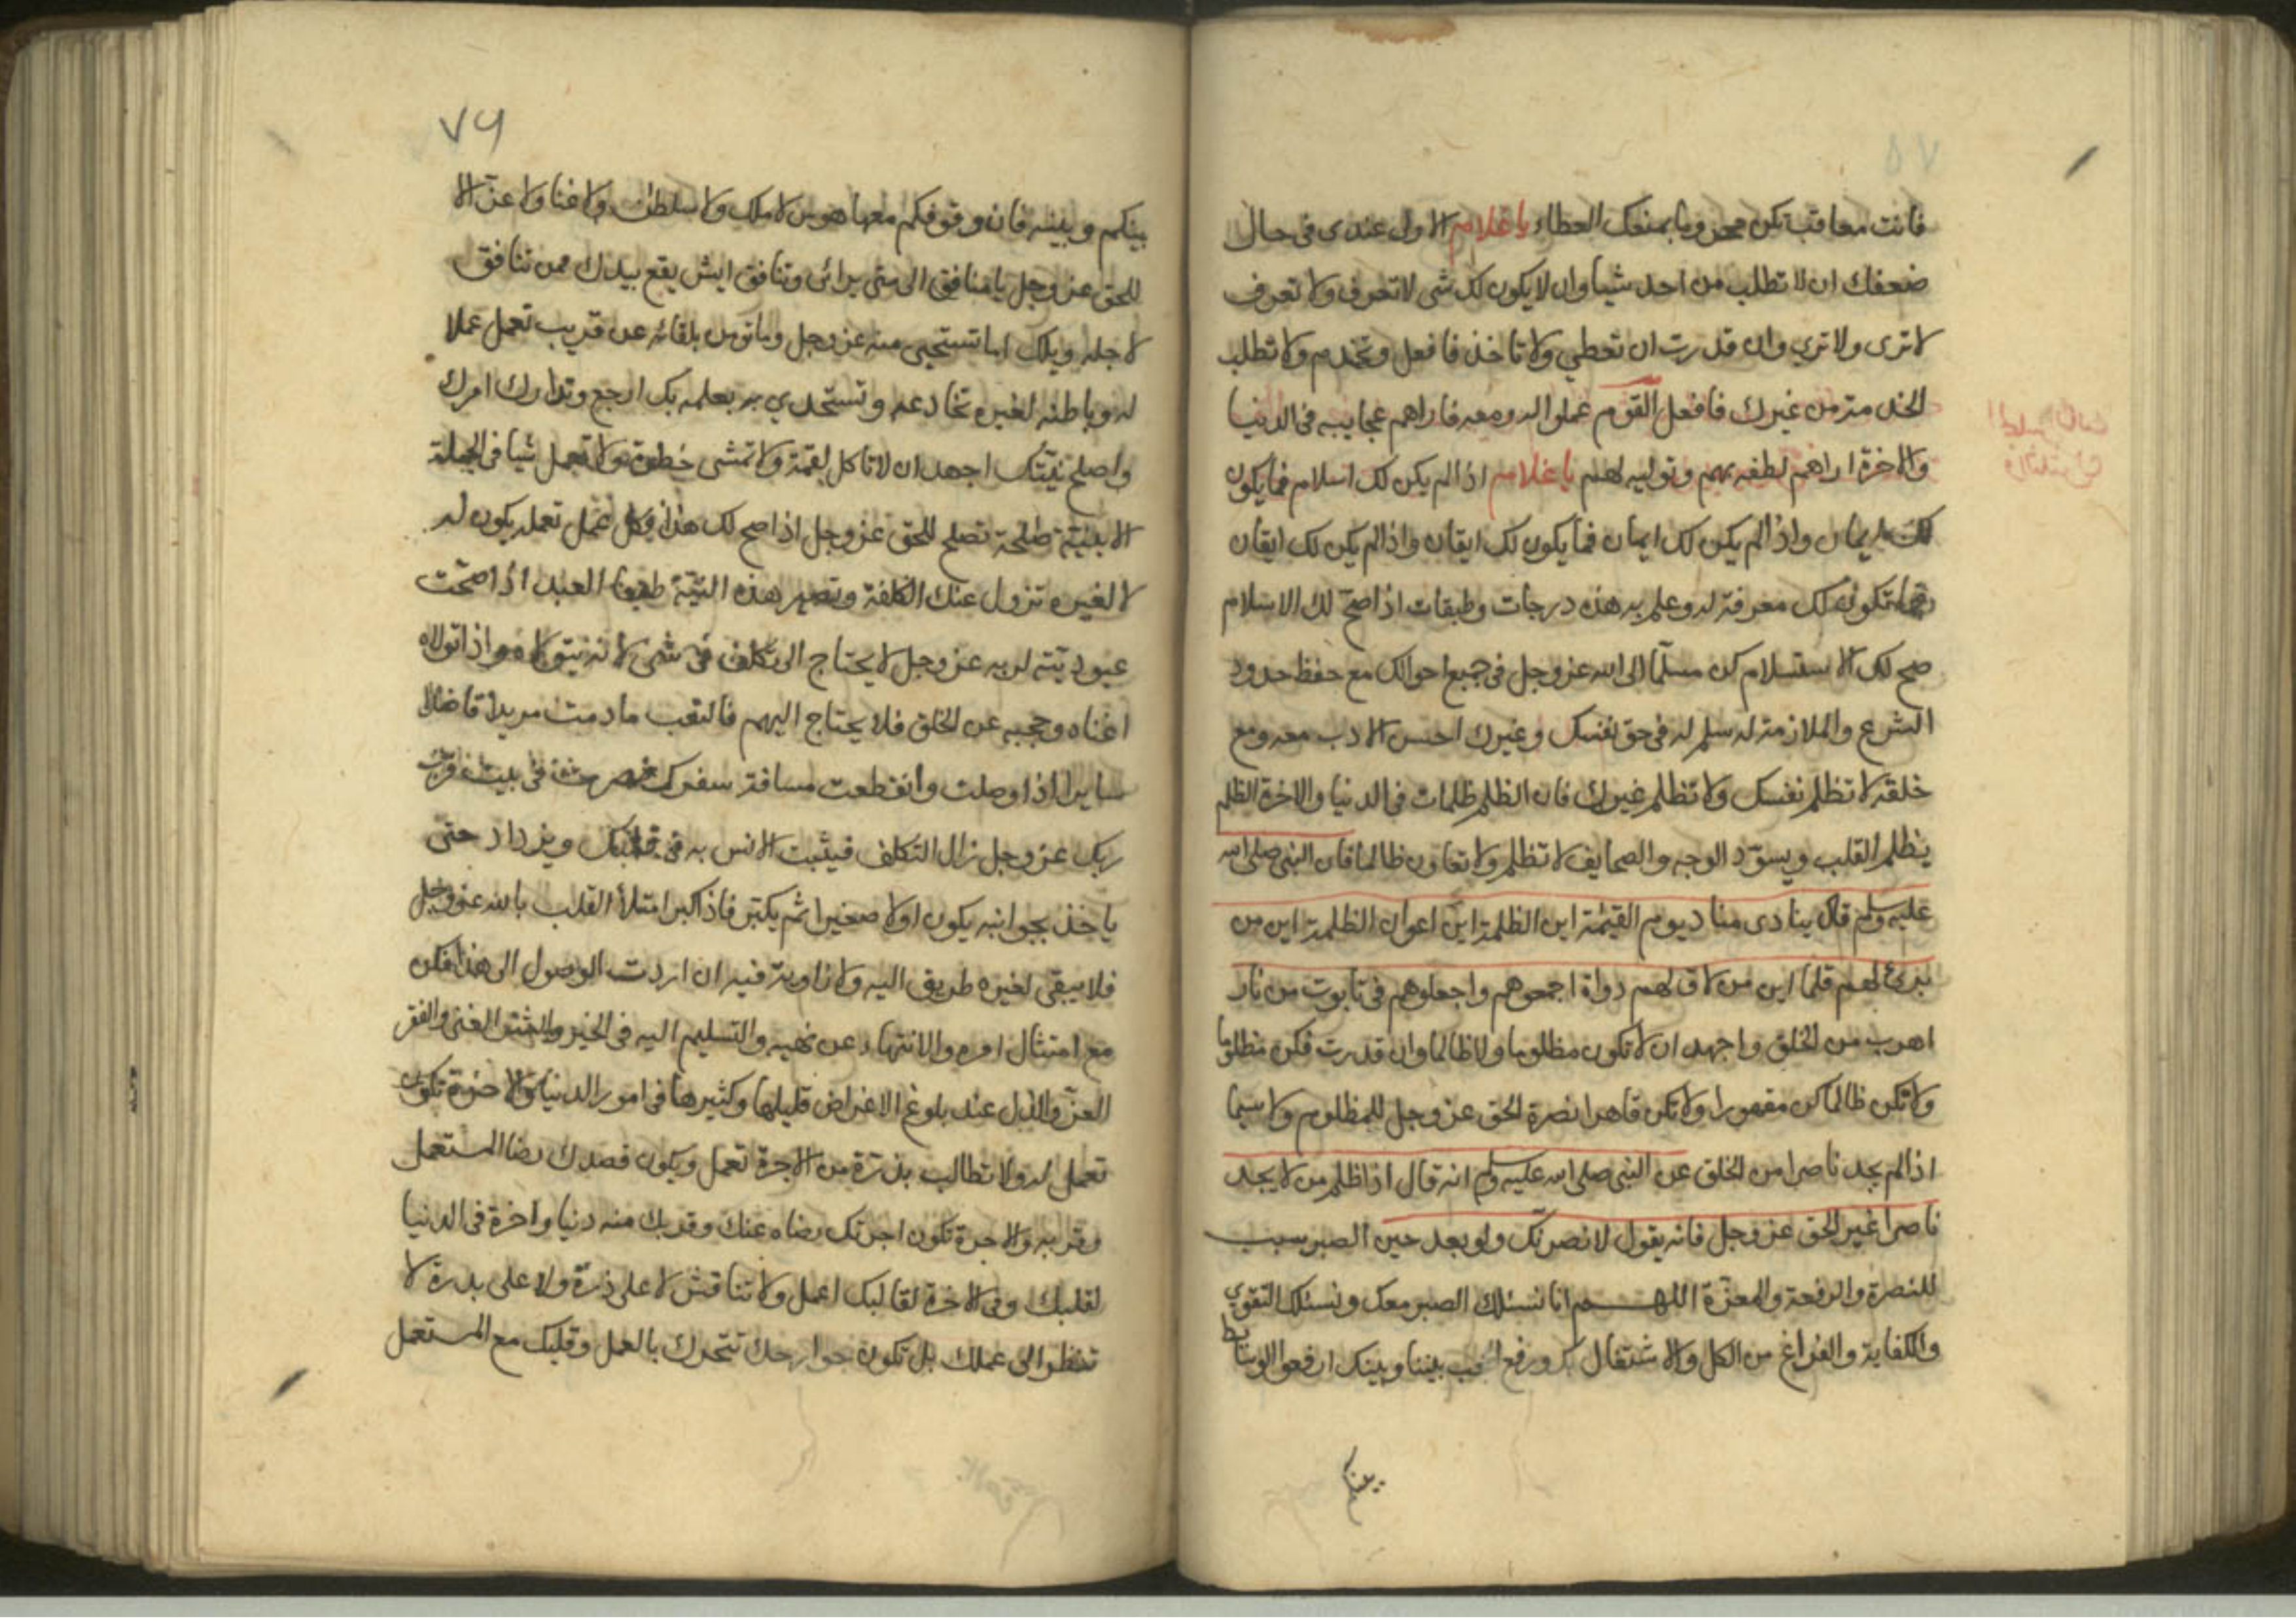 فانت معاقب تكن وما يمنعك العطاء يا غلام الاول عندى فى حال
ضعفك ان لا تطلب من احد شيا وان لا يكون لك شى لا تعرف ولا تعرف
لا ترى ولا ترى وان قدرت ان تعطي ولا تاخذ فافعل وتخدم ولا تطلب
الخدمة من غيرك فافعل القوم عملوا له ومعه فاراهم عجايبه فى الدنيا
والاخرة اراهم لطفه بهم وتوليه لهم يا غلام اذا لم يكن لك اسلام فما يكون
لك ايمان واذا لم يكن لك ايمان فما يكون لك ايقان واذا لم يكن لك ايقان
فما تكون لك معرفة له وعلم به هذه درجات وطبقات اذا صحّ لك الاسلام
صح لك الاستسلام كن مسلّما الى الله عز وجل فى جميع احوالك مع حفظ حدود
الشرع والملازمة له سلم له فى حق نفسك وغيرك احسن الادب معه ومع
خلقه لا تظلم نفسك ولا تظلم غيرك فان الظلم ظلمات فى الدنيا والاخرة الظلم
يظلم القلب ويسوّد الوجه والصحايف لا تظلم ولا تعاون ظالما فان النبى صلى الله
عليه وسلم قال ينادى مناد يوم القيمة اين الظلمة اين اعوان الظلمة اين من
برئ لهم قلما اين من لاق لهم دواة اجمعوهم واجعلوهم فى تابوت من نار
اهرب من الخلق واجهد ان لا تكون مظلوما ولا ظالما وان قدرت فكن مظلوما
ولا تكن ظالما كن مقهورا ولا تكن قاهرا نصرة الحق عز وجل للمظلوم ولا سيما
اذا لم يجد ناصرا من الخلق عن النبى صلى الله عليه وسلم انه قال اذا ظلم من لا يجد
ناصرا غير الحق عز وجل فانه يقول لانصرنّك ولو بعد حين الصبر سبب
للنصرة والرفعة والمعزة اللهم انا نسئلك الصبر معك ونسئلك التقوى
والكفاية والفراغ من الكل والاشتغال بك ورفع الحجب بيننا وبينك ارفعوا الوسايط
بينكم
٧٦
بينكم وبينه فان وقوفكم معها هوس لا ملك ولا سلطان ولا غنا ولا عزّ الا
للحق عز وجل يا منافق الى متى ترائى وتنافق ايش يقع بيدك ممن تنافق
لاجله ويلك اما تستحيى منه عز وجل وما تومن بلقائه عن قريب تعمل عملا
له وباطنه لغيره تخادعه وتستجري به بعلمه بك ارجع وتدارك امرك
واصلح نيّتك اجهد ان لا تاكل لقمة ولا تمشى خطوة ولا تعمل شيا فى الجملة
الا بنيّة صالحة تصلح للحق عز وجل اذا صح لك هذا فكل عمل تعمله يكون له
لا لغيره تزول عنك الكلفة وتصير هذه النيّة طبعا العبد اذا صحّت
عبوديّته لربه عز وجل لا يحتاج الى تكلف فى شى لانه يتولاه واذا تولاه
اغناه وحجبه عن الخلق فلا يحتاج اليهم فالتعب ما دمت مريدا قاصدا
سايرا اذا وصلت وانقطعت مسافة سفرك فصرت فى بيت قرب
ربك عز وجل زال التكلف فيثبت الانس به فى قلبك ويزداد حتى
ياخذ بجوانبه يكون اولا صغيرا ثم يكبر فاذا كبر امتلأ القلب بالله عز وجل
فلا يبقى لغيره طريق اليه ولا زاوية فيه ان اردت الوصول الى هذا فكن
مع امتثال امره والانتهاء عن نهيه والتسليم اليه فى الخير والشر الغنى والفقر
العزّ والذل عند بلوغ الاغراض قليلها وكثيرها فى امور الدنيا والاخرة تكون
تعمل له ولا تطالب بذرّة من الاجرة تعمل ويكون قصدك رضا المستعمل
وقربه والاجرة تكون اجرتك رضاه عنك وقربك منه دنيا واخرة فى الدنيا
لقلبك وفى الاخرة لقالبك اعمل ولا تناقش لا على ذرّة ولا على بدرة لا
تنظر الى عملك بل تكون جوارحك تتحرك بالعمل وقلبك مع المستعمل